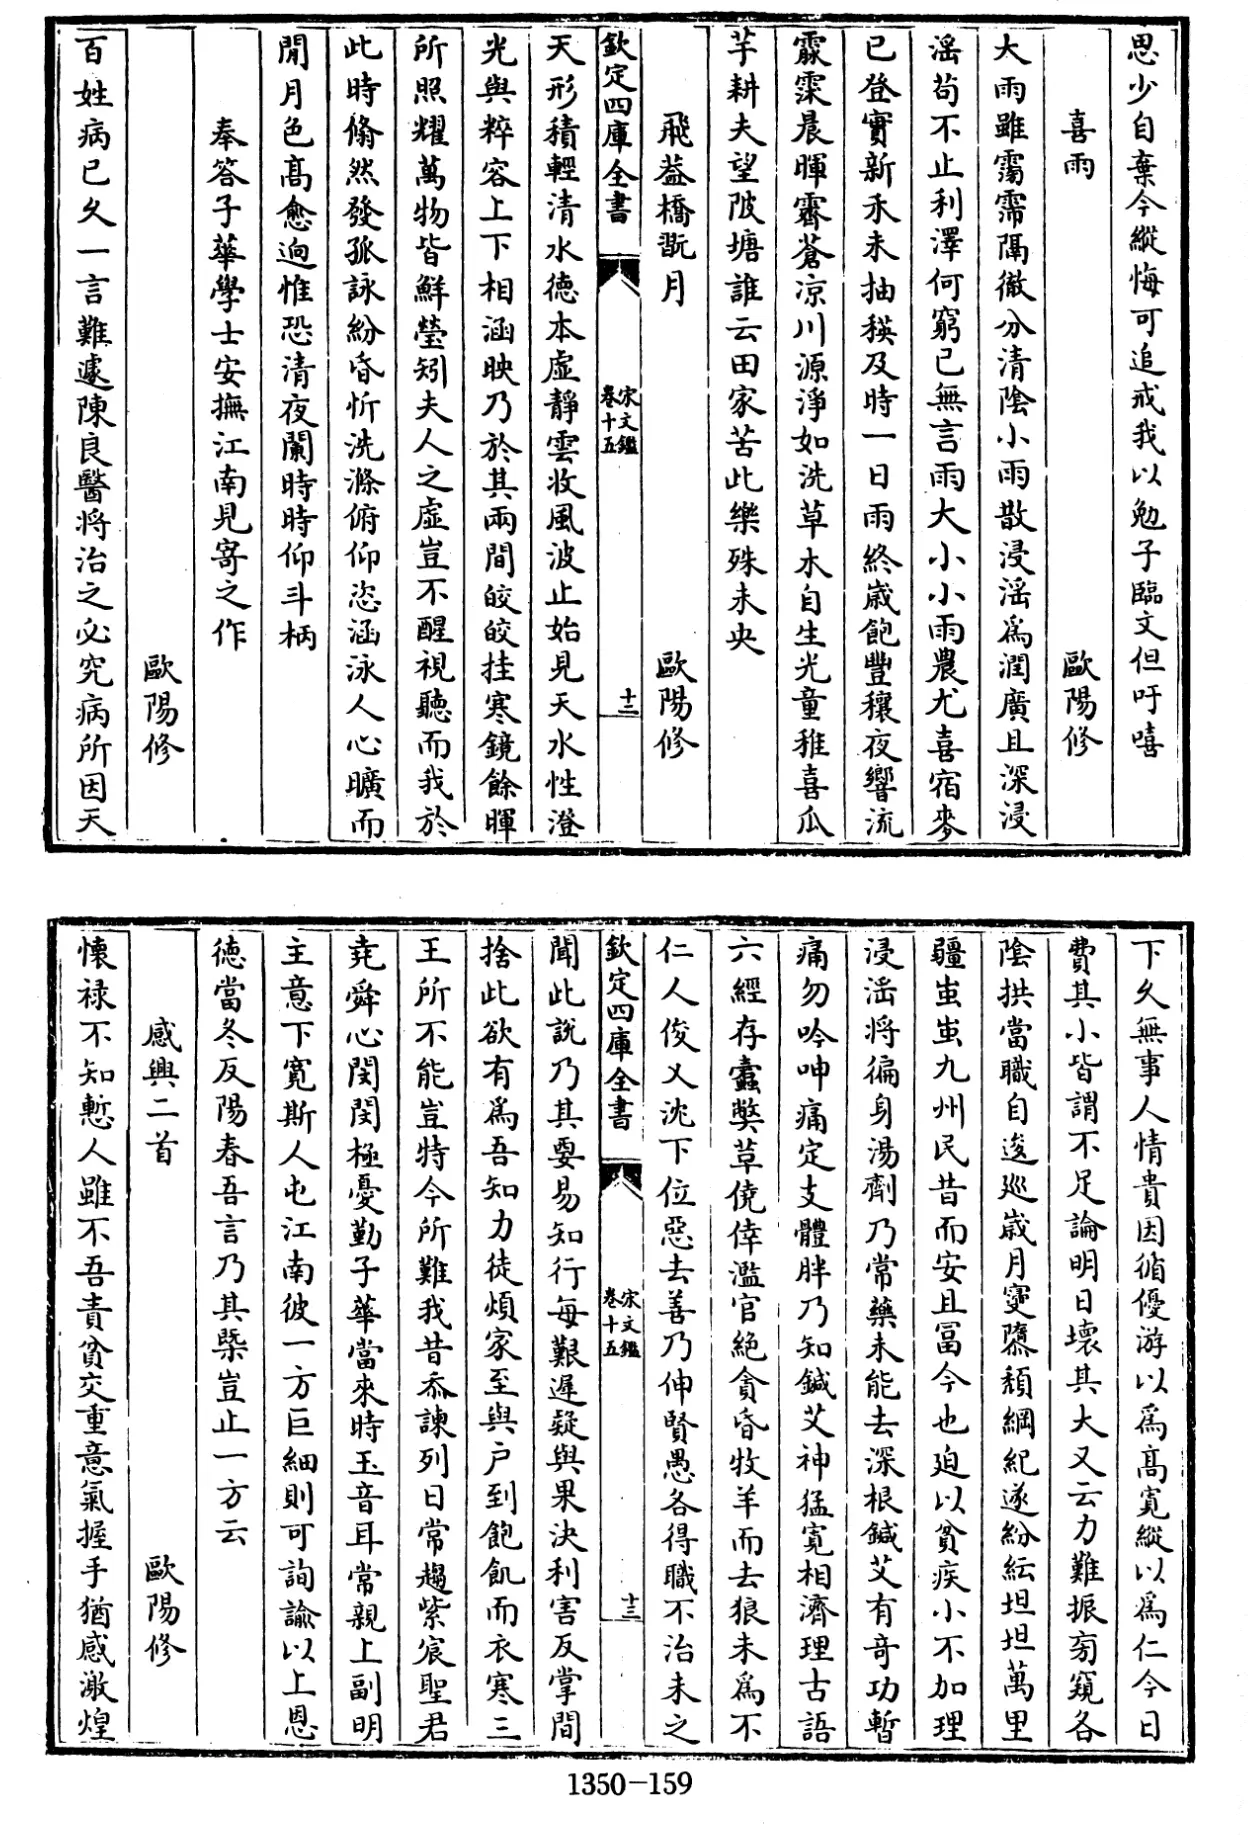 思少自棄今縱悔可追戒我以勉子臨文但吁嘻
喜雨 歐陽修
大雨雖霶霈隔徹分清陰小雨散浸淫為潤廣且深浸
淫苟不止利澤何窮已無言雨大小小雨農尤喜宿麥
已登實新禾未抽穟及時一日雨終歲飽豐穰夜響流
霡霂晨暉霽蒼凉川源淨如洗草木自生光童稚喜瓜
芋耕夫望陂塘誰云田家苦此樂殊未央
飛葢橋翫月 歐陽修
欽定四庫全書
宋文鑑
卷十五
十二
天形積輕清水德本虛靜雲收風波止始見天水性澄
光與粹容上下相涵映乃於其兩間皎皎挂寒鏡餘暉
所照耀萬物皆鮮瑩矧夫人之虛豈不醒視聽而我於
此時翛然發孤詠紛昏忻洗滌俯仰恣涵泳人心曠而
閒月色髙愈逈惟恐清夜闌時時仰斗柄
奉答子華學士安撫江南見寄之作
歐陽修
百姓病已久一言難遽陳良醫將治之必究病所因天
下久無事人情貴因循優游以為髙寛縱以為仁今日
費其小皆謂不足論明日壞其大又云力難振旁窺各
陰拱當職自逡廵歲月寖隳頽綱紀遂紛紜坦坦萬里
疆蚩蚩九州民昔而安且富今也廹以貧疾小不加理
浸淫將徧身湯劑乃常藥未能去深根鍼艾有竒功暫
痛勿吟呻痛定支體胖乃知鍼艾神猛寛相濟理古語
六經存蠧獘革僥倖濫官絶貪昏牧羊而去狼未為不
仁人俊乂沈下位惡去善乃伸賢愚各得職不治未之
欽定四庫全書
宋文鑑
卷十五
十三
聞此說乃其要易知行每艱遲疑與果決利害反掌間
捨此欲有為吾知力徒煩家至與户到飽飢而衣寒三
王所不能豈特今所難我昔忝諫列日常趨紫宸聖君
堯舜心閔閔極憂勤子華當來時玉音耳常親上副明
主意下寛斯人屯江南彼一方巨細則可詢諭以上恩
徳當冬反陽春吾言乃其槩豈止一方云
感興二首 歐陽修
懐禄不知慙人雖不吾責貧交重意氣握手猶感激煌
1350-159